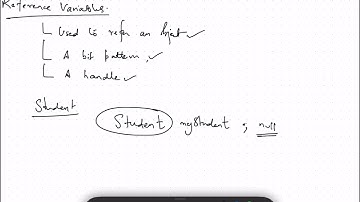 Reference Variables.
Used to refer an object
A bit pattern,
A handle
Student
Student myStudent ; null